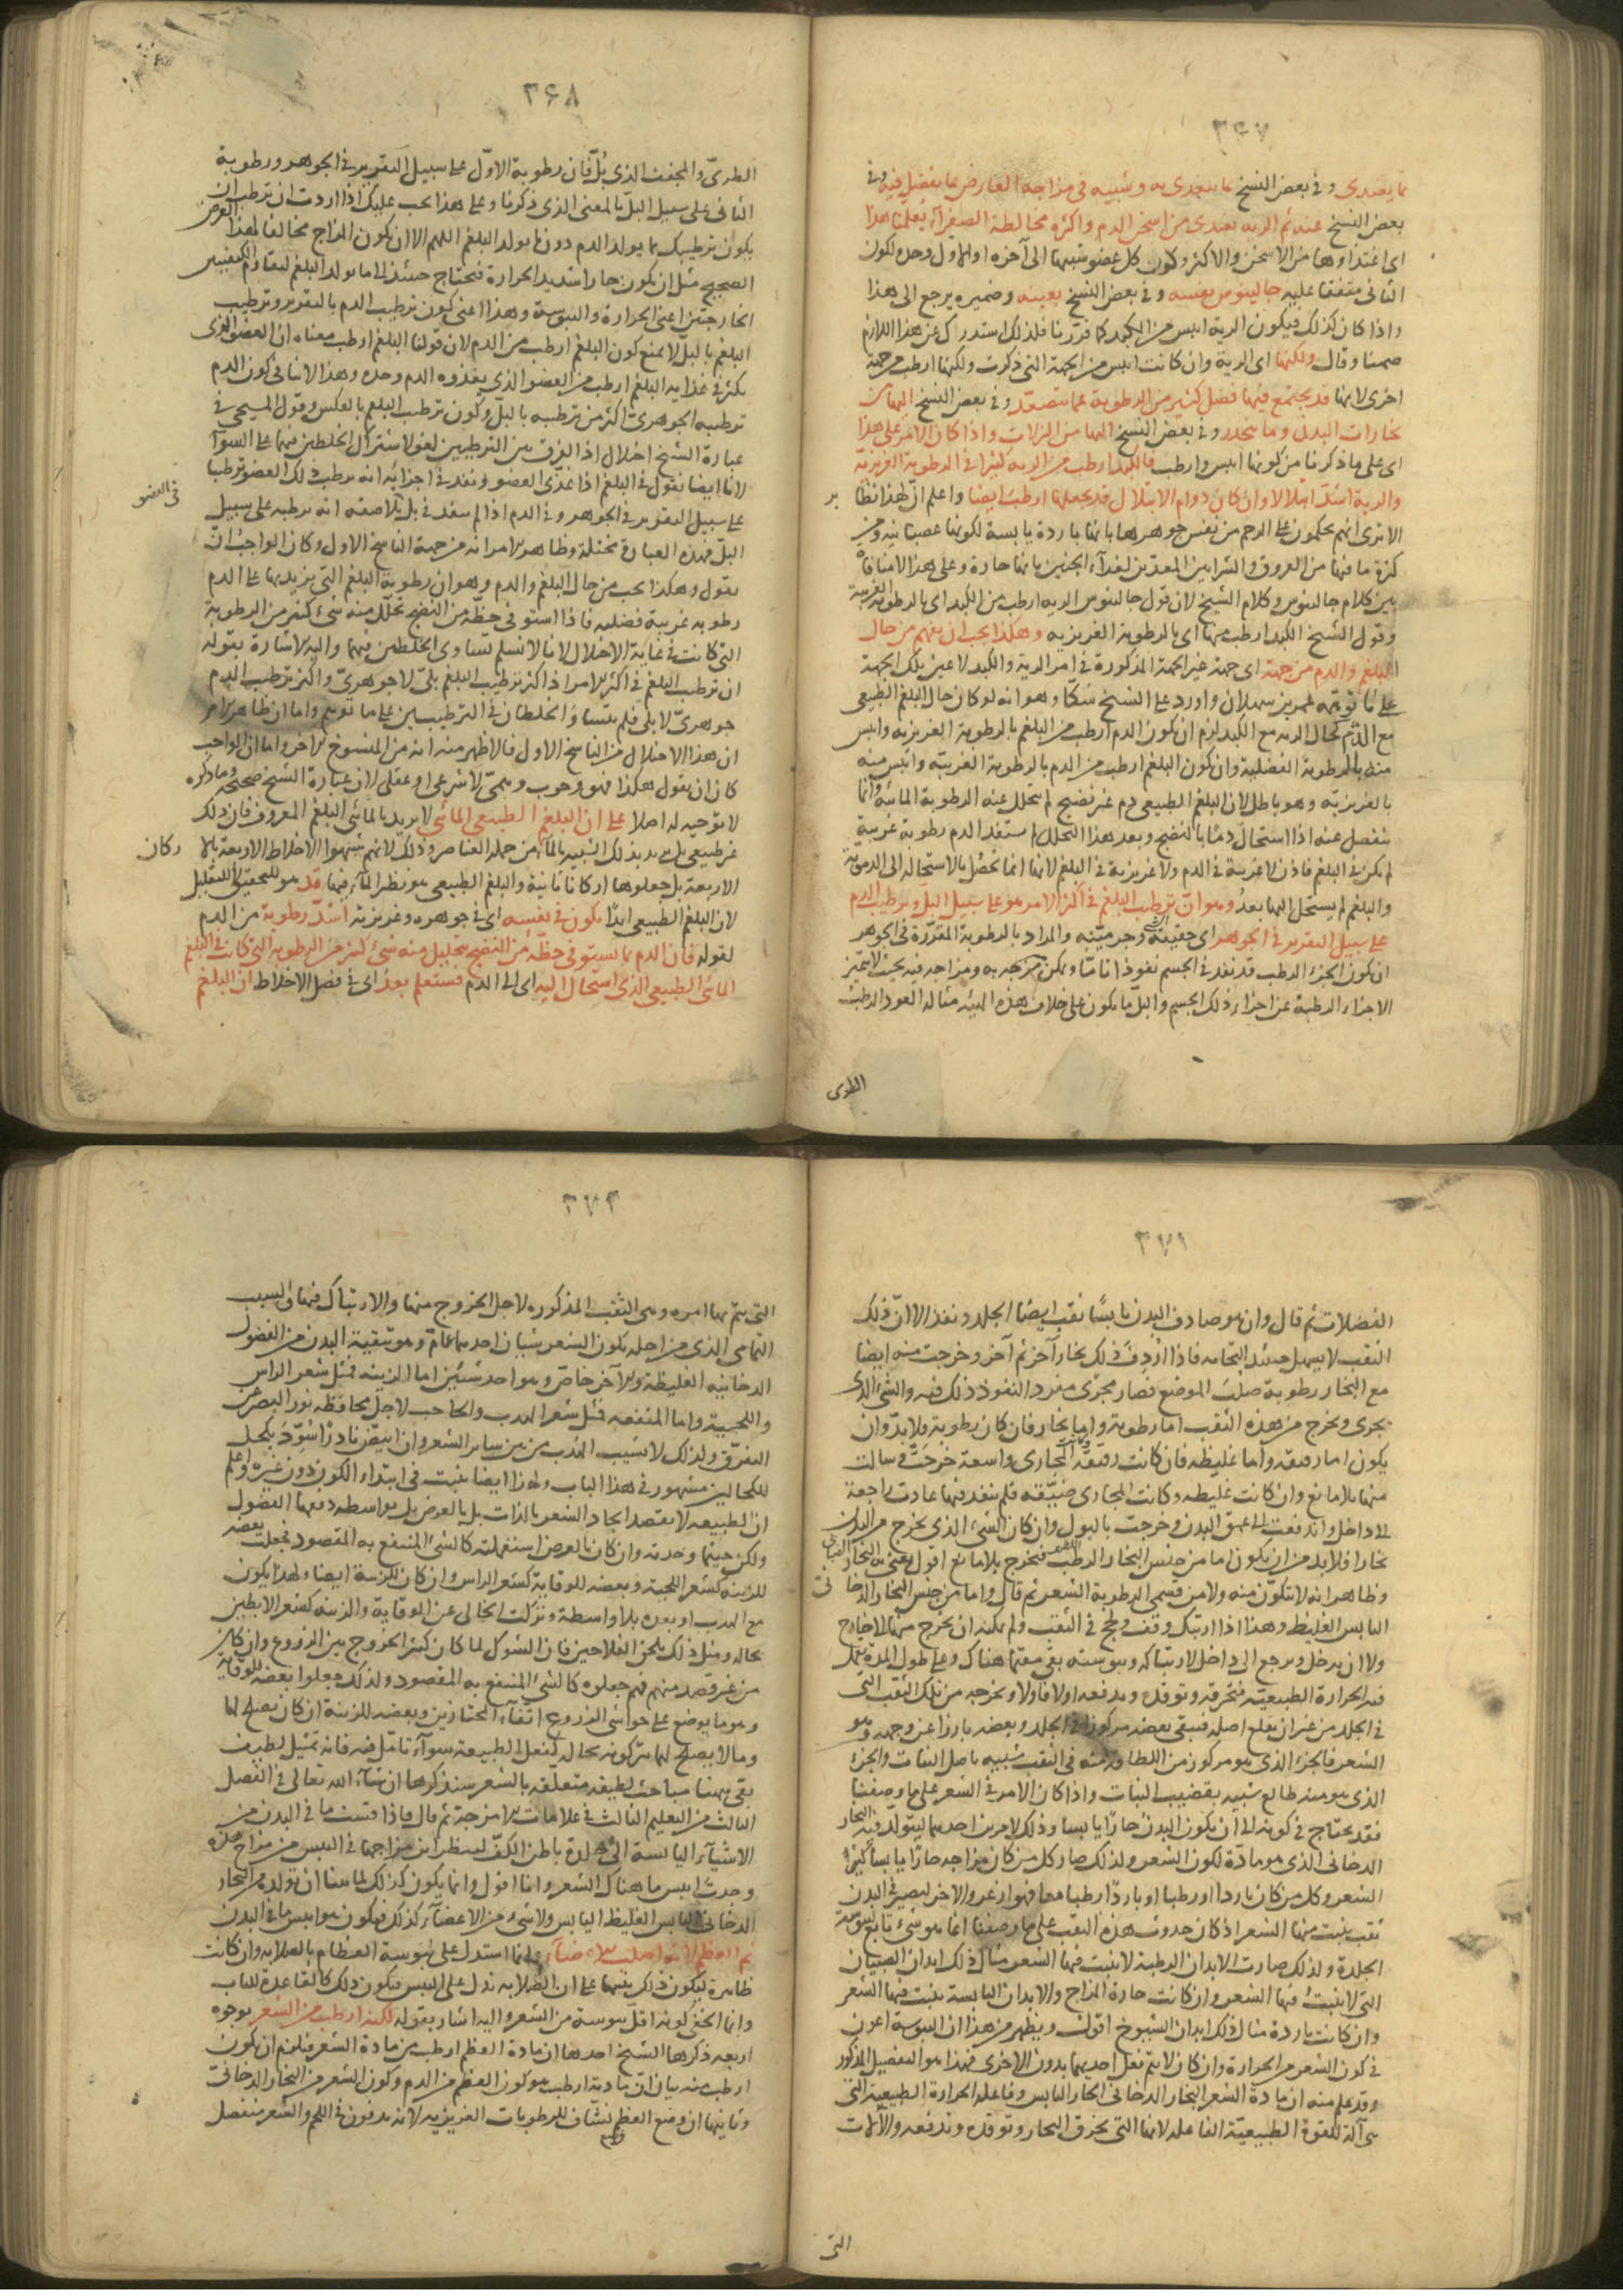 ٣٤٧
مما يغتدى وفى بعض النسخ مما يتغذى به وشبيه فى مزاجه العارض بما يفضل فيه وفى
بعض النسخ عنه ثم الريه تغتدى من اسخن الدم واكثره مخالطة للصفراء يعلمنا هذا
اى اغتذاوها من الاسخن والاكثر وكون كل عضو شبيها الى آخره او الاول وحده لكون
الثانى متفقا عليه جالينوس بعينه وفى بعض النسخ بعينه وضميره يرجع الى هذا
واذا كان كذلك فيكون الرية ايبس من الكبد كما قررنا فلذلك استدرك عن هذا اللازم
ضمنا وقال ولكنها اى الرية وان كانت ايبس من الجهة التى ذكرت ولكنها ارطب من جهة
اخرى لانها قد يجتمع فيها فضل كثير من الرطوبة عما يتصعد وفى بعض النسخ اليها من
بخارات البدن وما ينحدر وفى بعض النسخ اليها من النزلات واذا كان الامر على هذا
اى على ما ذكرنا من كونها ايبس وارطب فالكبد ارطب من الريه كثيرا فى الرطوبة الغريزية
والرية اشد ابتلالا وان كان دوام الابتلال قد يجعلها ارطب ايضا واعلم ان لهذا نظا
ير
الا ترى انهم يحكمون على الرحم من نفس جوهرها بانها باردة يابسة لكونها عصبانيه ومن
كثرة ما فيها من العروق والشرايين المعدين لغذاء الجنين بانها حارة وعلى هذا لا منافاة
بين كلام جالينوس وكلام الشيخ لان قول جالينوس الريه ارطب من الكبد اى بالرطوبة الغريبة
وقول الشيخ الكبد ارطب منها اى بالرطوبة الغريزيه وهكذا يجب ان يفهم من حال
البلغم والدم من جهة اى جهة غير الجهة المذكورة فى امر الرية والكبد لا عين تلك الجهة
على ما توهمه عمر بن سهلان واورد على الشيخ شكا وهو انه لو كان حال البلغم الطبيعى
مع الدم كحال الريه مع الكبد لزم ان يكون الدم ارطب من البلغم بالرطوبة الغريزيه وايبس
منه بالرطوبة الفضلية وان يكون البلغم ارطب من الدم بالرطوبة الغريبة وايبس منه
بالغريزيه وهو باطل لان البلغم الطبيعى دم غير نضيج لم يتحلل عنه الرطوبة المائية وانما
ينفصل عنه اذا استحال دما بالنضج وبعد هذا التحلل لم يستفد الدم رطوبة غريبة
لم يكن فى البلغم فاذن لا غريبة فى الدم ولا غريزية فى البلغم لانها انما تحصل بالاستحالة الى الدموية
والبلغم لم يستحل اليها بعد وهو ان ترطيب البلغم فى اكثر الامر هو على سبيل البل وترطيب الدم
على سبيل التقرير فى الجوهر اى حقيقته وجرميته والمراد بالرطوبة المقررة فى الجوهر
ان يكون الجزء الرطب قد نفذ فى الجسم نفوذا تاما ويمكن مزجه به ومزاجه فيه بحيث لا يتميز
الاجزاء الرطبة عن اجزاء ذلك الجسم والبل ما يكون على خلاف هذه الهيئه مثاله العود الرطب
الطرى
٣٤٨
الطرى والمجفف الذى بل فان رطوبة الاول على سبيل التقرير فى الجوهر ورطوبة
الثانى على سبيل البل بالمعنى الذى ذكرنا وعلى هذا يجب عليك اذا اردت ان ترطب ان
يكون ترطيبك بما يولد الدم دون ما يولد البلغم اللهم الا ان يكون المزاج مخالفا لهذا الغرض
الصحيح مثل ان يكون حارا شديد الحرارة فتحتاج حينئذ الى ما يولد البلغم ليقاوم الكيفيتين
الخارجتين اعنى الحرارة واليبوسة وهذا اعنى كون ترطيب الدم بالتقرير وترطيب
البلغم بالبل لا يمنع كون البلغم ارطب من الدم لان قولنا البلغم ارطب معناه ان العضو الذى
يكثر فى غذايه البلغم ارطب من العضو الذى يغذوه الدم وحده وهذا لا ينافى كون الدم
ترطيبه الجوهرى اكثر من ترطيبه بالبل وكون ترطيب البلغم بالعكس وقول المسيحى فى
عبارة الشيخ اختلال اذ الفرق بين الترطيبين لغو لاشتراك الخلطين فيهما على السواء
لانا ايضا نقول فى البلغم اذا غذى العضو ونفذ فى اجزائه انه يرطب ذلك العضو ترطيبا
فى العضو
على سبيل التقرير فى الجوهر وفى الدم اذا لم ينفذ فى بل يلاصقه انه يرطبه على سبيل
البل فهذه العبارة مختلة وظاهر الامر انه من جهة الناسخ الاول وكان الواجب ان
يقول وهكذا يجب من حال البلغم والدم وهو ان رطوبة البلغم التى يزيد بها على الدم
رطوبة غريبة فضليه فاذا استوفى حظه من النضج تحلل منه شىء كثير من الرطوبة
التى كانت فى غاية الاختلال لانا لا نسلم تساوى الخلطين فيهما واليه الاشارة بقوله
ان ترطيب البلغم فى اكثر الامر اذ اكثر ترطيب البلغم بلى لا جوهرى واكثر ترطيب الدم
جوهرى لا بلى فلم يتساو الخلطان فى الترطيبين على ما توهم واما ان ظاهر الامر
ان هذا الاختلال من الناسخ الاول فالاظهر منه انه من المنسوخ الاخر واما ان الواجب
كان ان يقول هكذا فهو وجوب وهمى لا شرعى او عقلى لان عبارة الشيخ صحيحة وما ذكره
لا توجيه له اصلا على ان البلغم الطبيعى المائى لا يريد بالمائى البلغم المعروف فان ذلك
غير طبيعى بل يريد بذلك الشبيه بالماء من جملة العناصر وذلك لانهم شبهوا الاخلاط الاربعة بالا
ركان
الاربعة بل جعلوها اركانا ثانية والبلغم الطبيعى هو نظير الماء فيها قد هو للتحقيق لا للتقليل
لان البلغم الطبيعى ابدا يكون فى نفسه اى فى جوهره وغريزته اشد رطوبة من الدم
لقوله فان الدم بما يستوفى حظه من النضج يتحلل منه شىء كثير من الرطوبة التى كانت فى البلغم
المائى الطبيعى الذى استحال اليه اى الى الدم فستعلم بعد اى فى فصل الاخلاط ان البلغم
٣٧١
الفضلات ثم قال وان هو صادف البدن يابسا نقب ايضا الجلد ونفذ الا ان ذلك
الثقب لا يسهل حينئذ التحامه فاذا اردف ذلك بخار آخر ثم آخر وخرجت منه ايضا
مع البخار رطوبة صلب الموضع فصار مجرى مفرد النفوذ ذلك فيه والشىء الذى
يجرى ويخرج من هذه الثقب اما رطوبة واما بخار فان كان رطوبة فلا بد وان
يكون اما رقيقه واما غليظه فان كانت رقيقه وكانت المجارى واسعة خرجت وسالت
منها بلا مانع وان كانت غليظه وكانت المجارى ضيقه فلم ينفذ فيها عادت راجعة
الى داخل واندفعت الى عمق البدن وخرجت بالبول وان كان الشىء الذى يخرج من البدن
بخارا فلا بد من ان يكون اما من جنس البخار الرطب اللطيف فيخرج بلا مانع اقول يعنى من البخار
وظاهر انه لا يتكون منه ولا من قسمى الرطوبة الشعر ثم قال واما من جنس البخار الدخا
نى
اليابس الغليظ وهذا اذا ارتبك وقف ولحج فى الثقب ولم يمكنه ان يخرج منها الى خارج
ولا ان يدخل ويرجع الى داخل لارتباكه ويبوسته بقى مقيما هناك وعلى طول المدة يعمل
فيه الحرارة الطبيعيه فتحرقه وتوقده ويدفعه اولا فاولا ويخرجه من تلك الثقب التى
فى الجلد من غير ان يقلع اصله فيبقى بعضه مركوزا فى الجلد وبعضه بارزا عن وجهه وهو
الشعر فالجزء الذى هو مركوز من اللطافة منه فى الثقب شبيه باصل النبات والجزء
الذى هو منه طالع شبيه بقضيب النبات واذا كان الامر فى الشعر على ما وصفنا
فقد يحتاج فى كونه الى ان يكون البدن حارا يابسا وذلك لامرين احدهما ليتولد فيه البخار
الدخانى الذى هو مادة لكون الشعر ولذلك صار كل من كان مزاجه حارا يابسا كثير
الشعر وكل من كان باردا او رطبا او باردا رطبا معا فهو ازعر والاخر ليصير فى البدن
ثقب ينبت منها الشعر اذ كان حدوث هذه الثقب على ما وصفنا انما هو شىء تابع ليبوسة
الجلدة ولذلك صارت الابدان الرطبة لا ينبت فيها الشعر مثال ذلك ابدان الصبيان
التى لا ينبت فيها الشعر وان كانت حارة المزاج والابدان اليابسة ينبت فيها الشعر
وان كانت باردة مثال ذلك ابدان الشيوخ اقول ويظهر من هذا ان اليبوسة اعون
فى كون الشعر من الحرارة وان كان لا يتم فعل احديهما بدون الاخرى فهذا هو التفصيل المذكور
وقد علم منه ان مادة الشعر البخار الدخانى الحار اليابس وفاعله الحرارة الطبيعية التى
هى آلة للقوة الطبيعية الفاعلة لانها التى يحرق البخار وتوقده وتدفعه والآلات
التى
٣٧٢
التى يتم بها امره وهى الثقب المذكوره لاجل الخروج منها والارتباك فيها والسبب
التمامى الذى من اجله يكون الشعر شيئان احدهما عام وهو تنقية البدن من الفضول
الدخانيه الغليظة والآخر خاص وهو احد شيئين اما الزينه فمثل شعر الراس
واللحية واما المنفعه فمثل شعر الهدب والحاجب لاجل محافظه نور البصر عن
التفرق ولذلك لا يشيب الهدب من بين سائر الشعر وان ابيض نادرا سود بكحل
للكحالين مشهور فى هذا الباب ولهذا ايضا ينبت فى ابتداء الكون دون غيره واعلم
ان الطبيعه لا يقصد ايجاد الشعر بالذات بل بالعرض بل بواسطه دفعها الفضول
ولكن حيثما وجدته وان كان بالعرض استعملته كالشىء المنتفع به المقصود فجعلت بعضه
للزينه كشعر اللحية وبعضه للوقاية كشعر الراس وان كان للزينة ايضا ولهذا يكون
مع الهدب او بعده بلا واسطة وتركت الخالى عن الوقاية والزينه كشعر الابطين
بحاله ومثل ذلك يلحق الفلاحين فان الشوك لما كان كثير الخروج بين الزروع وان كان
من غير قصد منهم فهم جعلوه كالشىء المنتفع به المقصود ولذلك جعلوا بعضه للوقاية
وهو ما يوضع على حواشى الزروع اتقاء المجتازين وبعضه للزينة ان كان يصلح لها
وما لا يصلح لهما يتركونه بحاله كفعل الطبيعة سواء تامل فيه فانه تمثيل لطيف
بقى ههنا مباحث لطيفه متعلقه بالشعر سنذكرها ان شاء الله تعالى فى الفصل
الثالث من التعليم الثالث فى علامات الامزجة ثم قال فاذا قست ما فى البدن من
الاشياء اليابسة الى جلدة باطن الكف لينظر اين مزاجها فى اليبس من مزاج
وجدت ايبس ما هناك الشعر وانا اقول وانما يكون كذلك لما بينا ان تولده من البخار
الدخانى اليابس الغليظ اليابس ولا شىء من الاعضاء كذلك فيكون هو ايبس ما فى البدن
ثم العظم لانه اصلب الاعضاء وانما استدل على يبوسة العظام بالصلابه وان كانت
ظاهرة ليكون ذلك تنبيها على ان الصلابه تدل على اليبس فيكون ذلك كالقاعدة للباب
وانما الخفى كونه اقل يبوسة من الشعر واليه اشار بقوله لكنه ارطب من الشعر بوجوه
اربعه ذكرها الشيخ احدها ان مادة العظم ارطب من مادة الشعر فيلزم ان يكون
ارطب منه بيان ان مادته ارطب هو كون العظم من الدم وكون الشعر من البخار الدخانى
وثانيها ان وضع العظم نشاف للرطوبات الغريزيه لانه مدفون فى اللحم والشعر منفصل